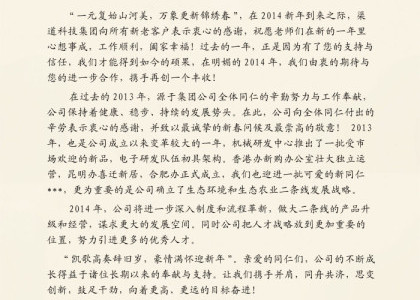 “一元复始山河美，万象更新锦绣春”，在 2014 新年到来之际，渠
道科技集团向所有新老客户表示衷心的感谢，祝愿老师们在新的一年里
心想事成，工作顺利，阖家幸福！过去的一年，正是因为有了您的支持与
信任，我们才能得到如今的硕果，在明媚的 2014 年，我们由衷的期待与
您的进一步合作，携手再创一个丰收！
在过去的 2013 年，源于集团公司全体同仁的辛勤努力与工作奉献，
公司保持着健康、稳步、持续的发展势头。在此，公司向全体同仁付出的
辛劳表示衷心的感谢，并致以最诚挚的新春问候及最崇高的敬意！ 2013
年，也是公司成立以来变革较大的一年，机械研发中心推出了一批受市
场欢迎的新品，电子研发队伍初具架构。香港办新购办公室壮大独立运
营，昆明办喜迁新居，合肥办正式成立，我们也迎进一批可爱的新同仁
•••，更为重要的是公司确立了生态环境和生态农业二条线发展战略。
2014 年，公司将进一步深入制度和流程革新，做大二条线的产品升
级和经营，谋求更大的发展空间。同时公司把人才战略放到更加重要的
位置，努力引进更多的优秀人才。
“凯歌高奏辞旧岁，豪情满怀迎新年”。亲爱的同仁们，公司的不断成
长得益于诸位长期以来的奉献与支持。让我们携手并肩，同舟共济，思变
创新，鼓足干劲，向着更高、更远的目标奋进！